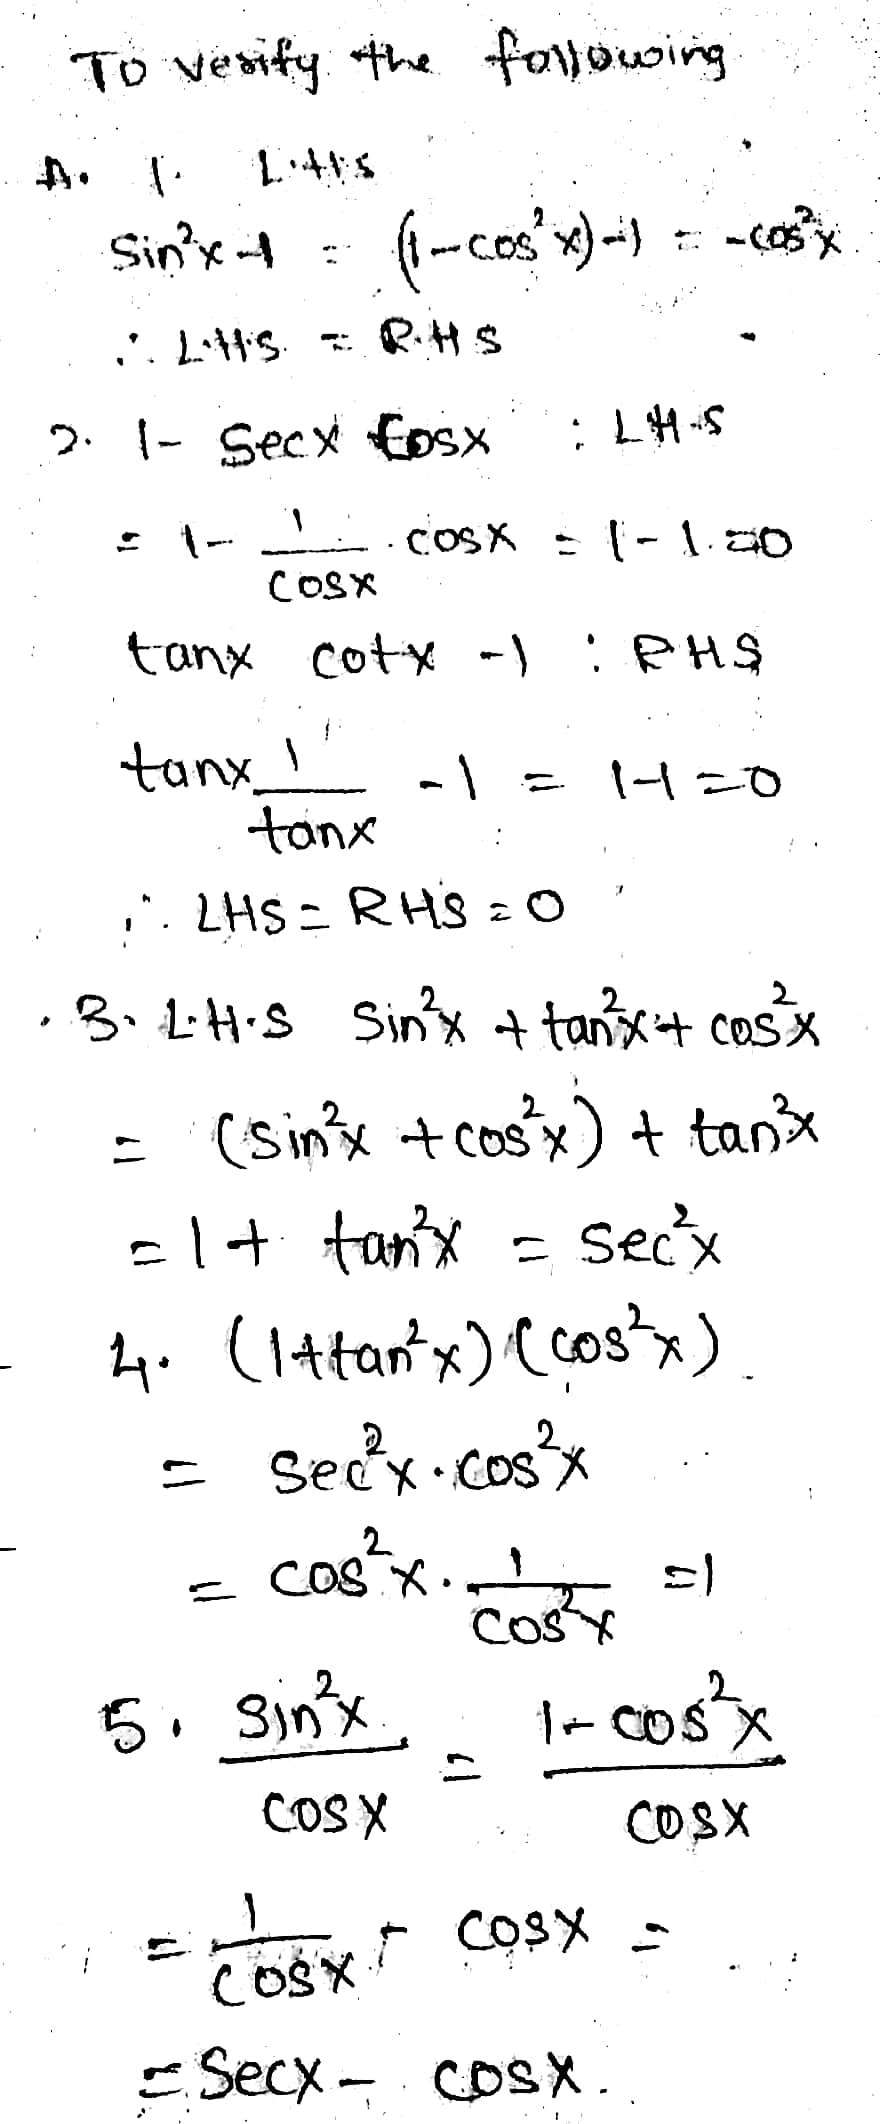 To verify the following
A. 1. L.H.S
Sin²x-1 = (1-cos²x)-1 = -cos²x
∴ L.H.S. = R.H S
2. 1- Secx Cosx : LH.S
= 1- 1/cosx . cosx = 1-1.=0
tanx cotx -1 : RHS
tanx 1/tanx -1 = 1-1=0
∴ LHS = RHS = 0
3. L.H.S Sin²x + tan²x + cos²x
= (sin²x + cos²x) + tan²x
= 1 + tan²x = Sec²x
4. (1+tan²x) (cos²x)
= Sec²x . cos²x
= cos²x . 1/cos²x =1
5. Sin²x/cosx = 1-cos²x/cosx
= 1/cosx - cosx =
= Secx - cosx.